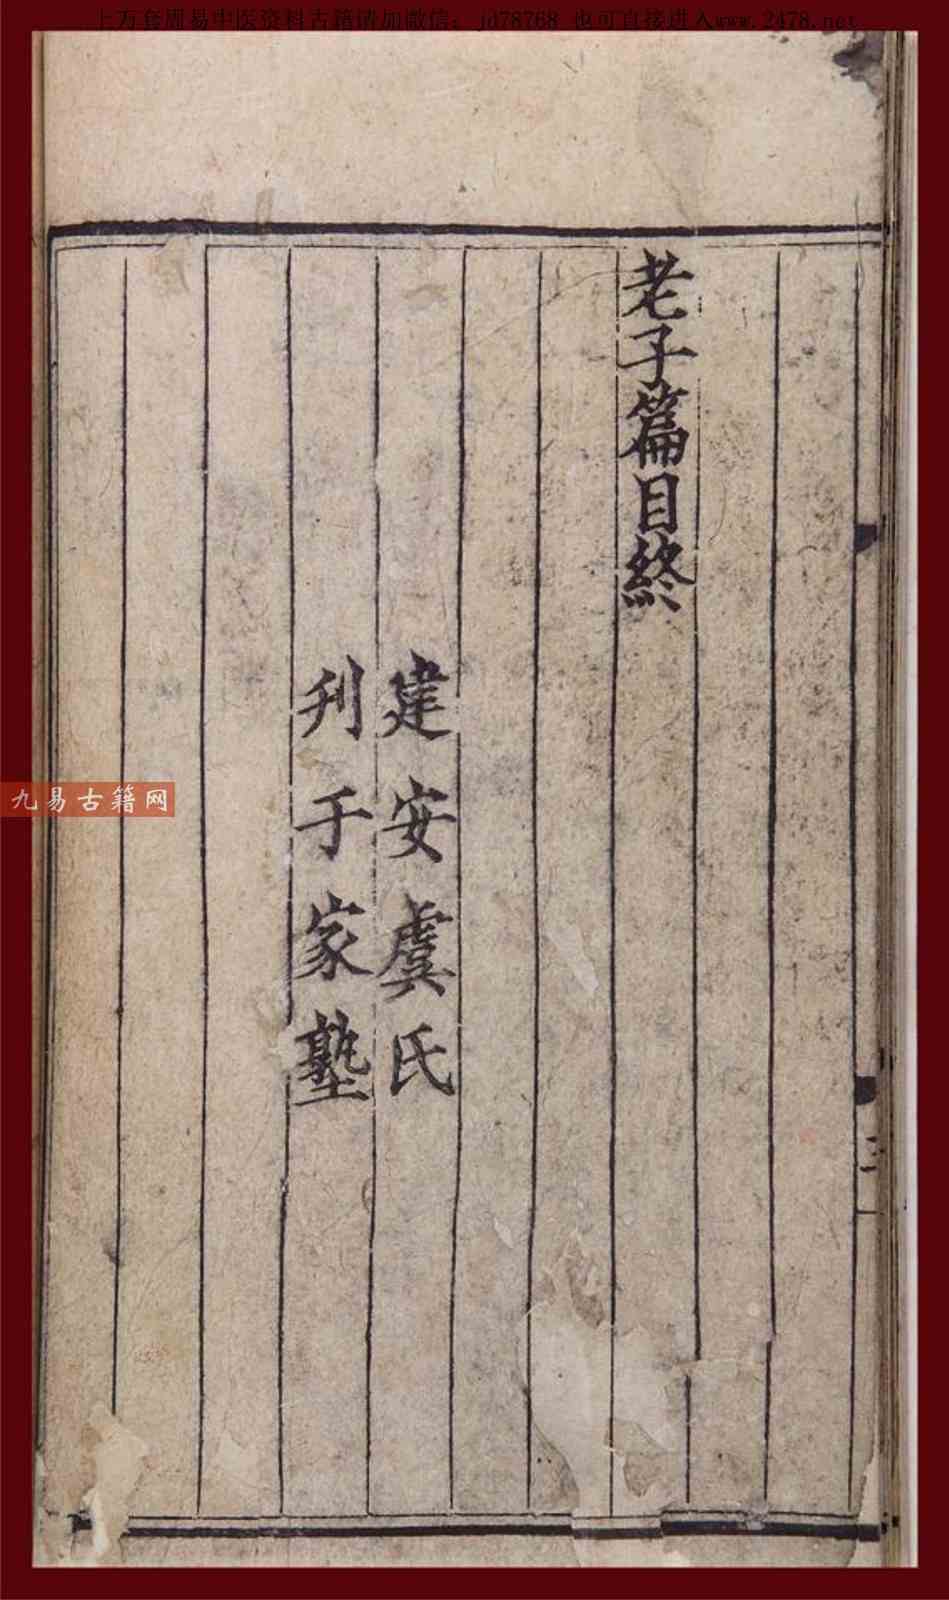 上万套周易中医资料古籍请加微信: jd78768 也可直接进入www.2478.net
老子篇目終
建安虞氏
刋于家塾
九易古籍网